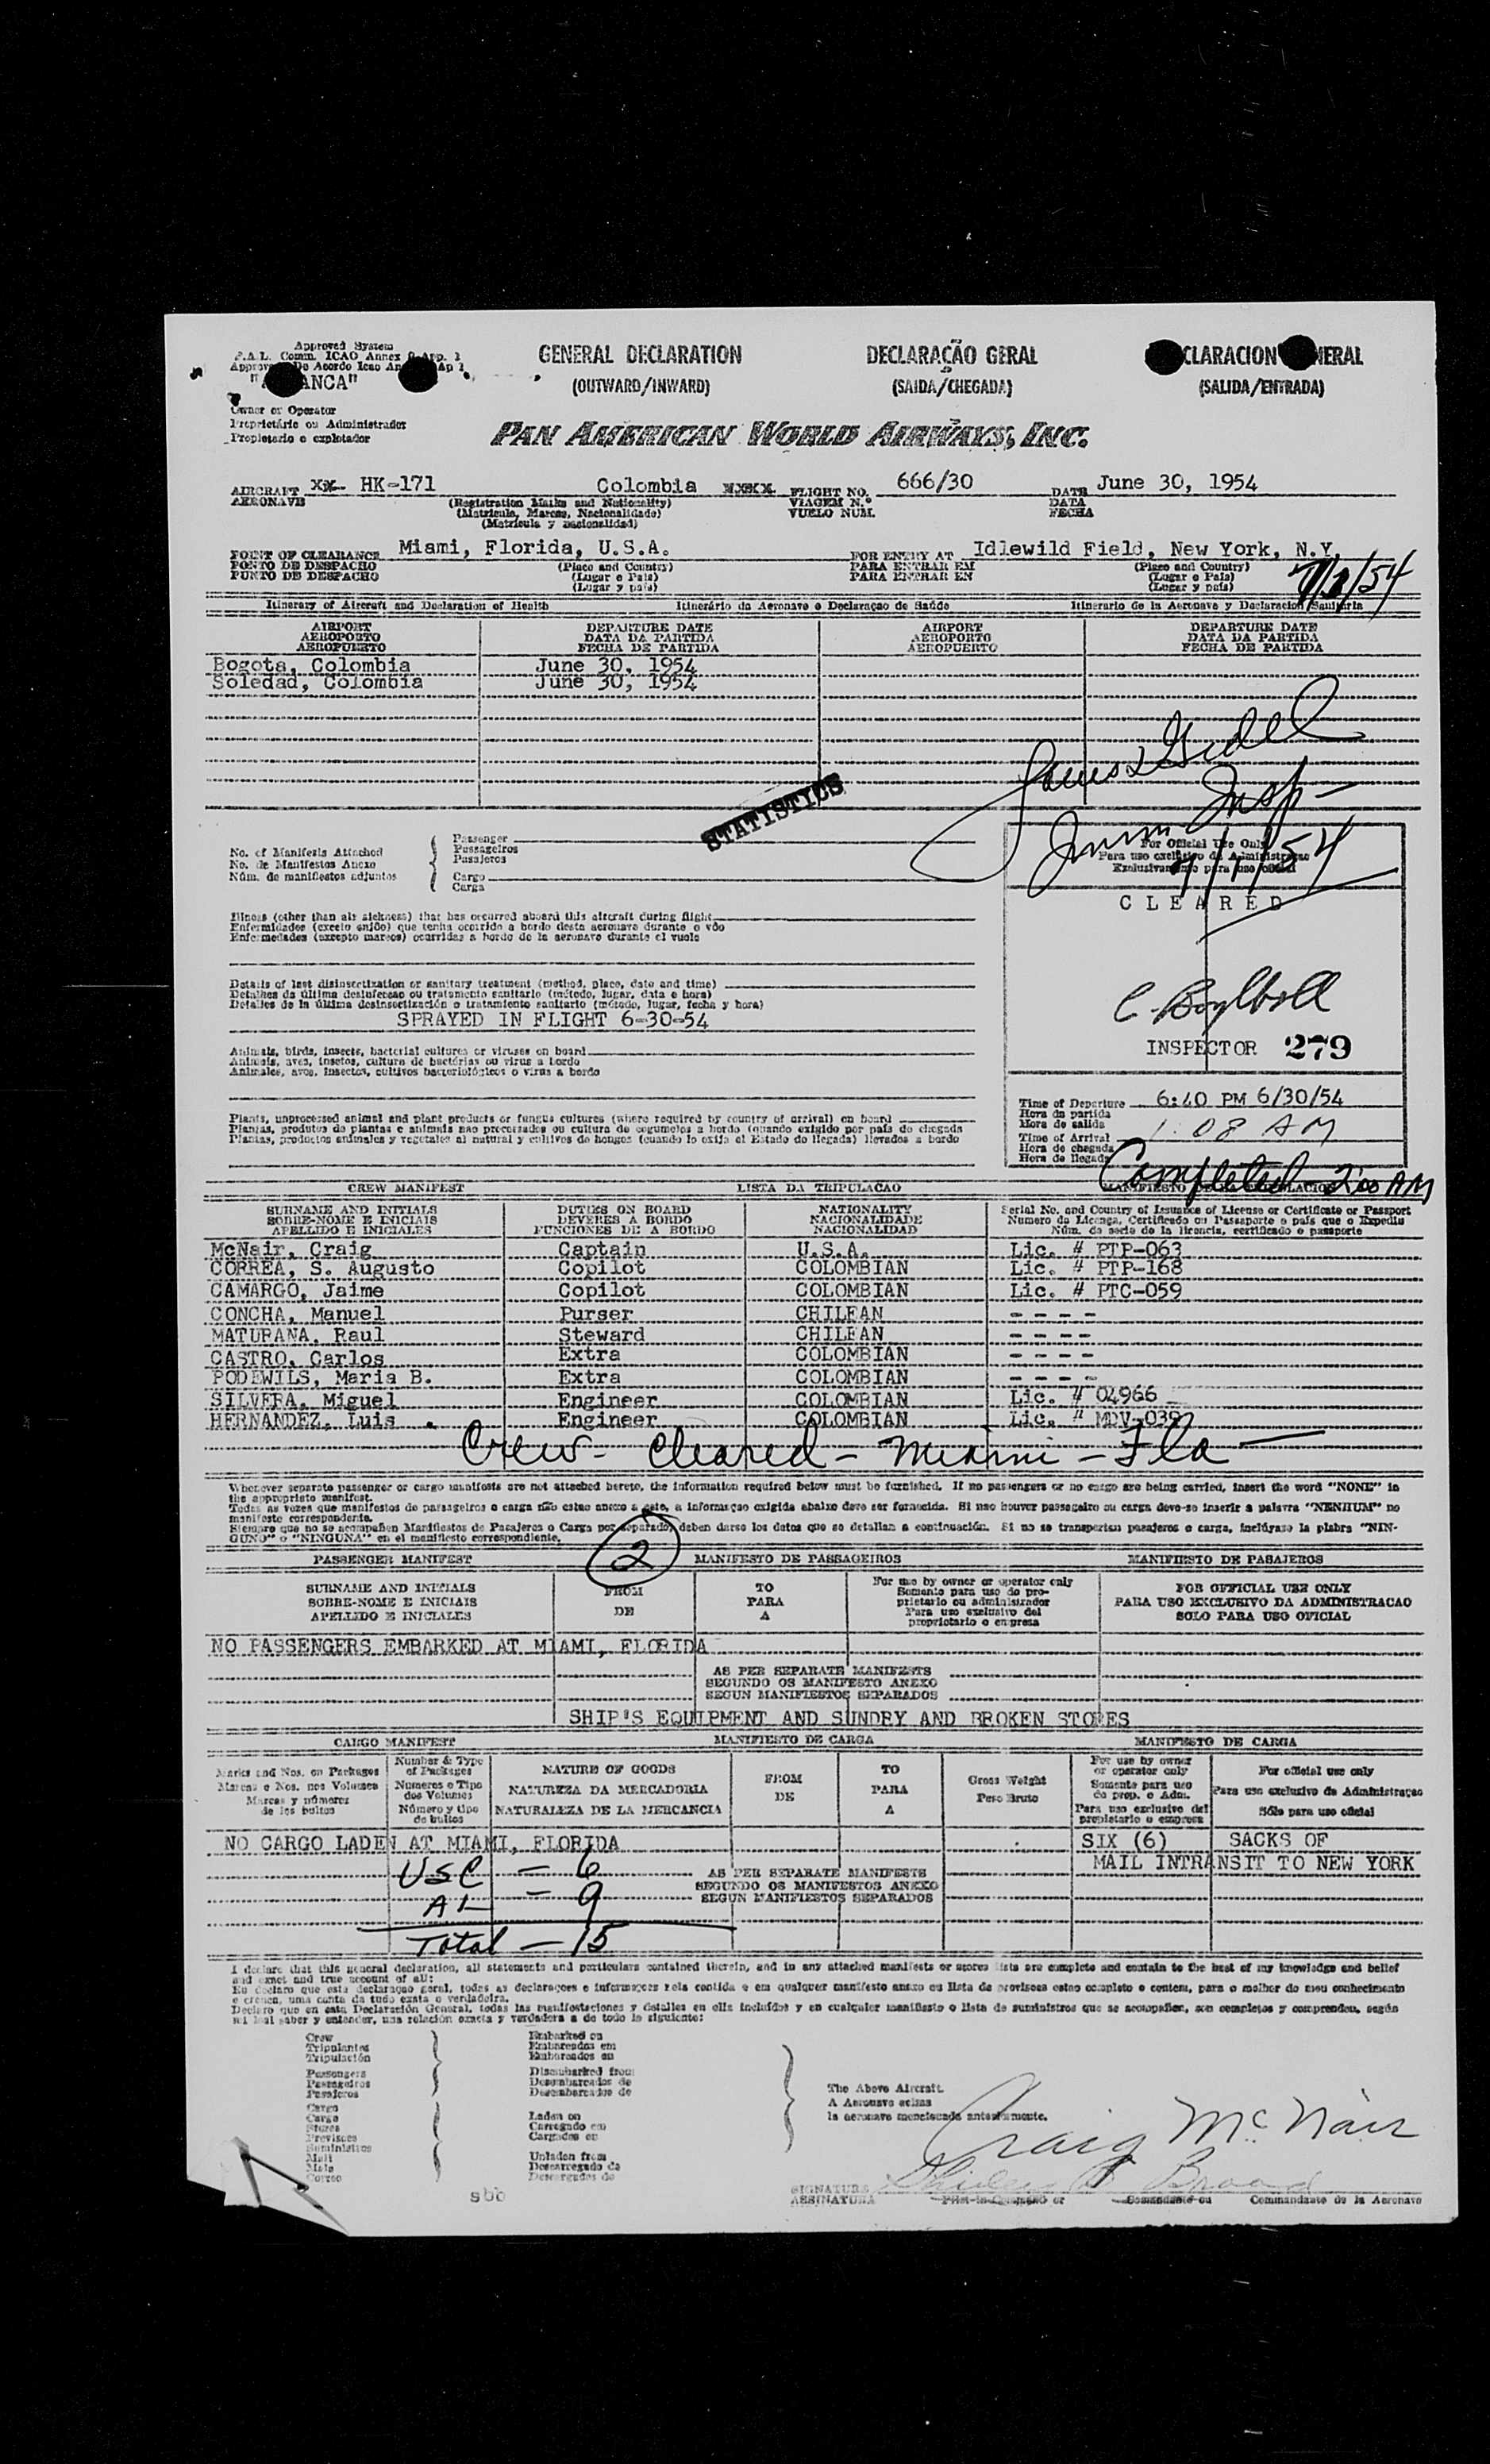 Approved System
F.A.L. Comm. ICAO Annex 9 App. 1
De Acordo Icao Ap 1
GENERAL DECLARATION
(OUTWARD/INWARD)
DECLARAÇÃO GERAL
(SAIDA/CHEGADA)
CLARACION NERAL
(SALIDA/ENTRADA)
ANCA"
Owner or Operator
Proprietário ou Administrador
Propietario o explotador
PAN AMERICAN WORLD AIRWAYS, INC.
AIRCRAFT HK-171 Colombia FLIGHT NO. 666/30 DATE June 30, 1954
AERONAVE (Registration Marks and Nationality) VIAGEM N.º DATA
(Matricula, Marcas, Nacionalidade) VUELO NUM. FECHA
(Matricula y nacionalidad)
POINT OF CLEARANCE Miami, Florida, U.S.A. FOR ENTRY AT Idlewild Field, New York, N.Y.
PONTO DE DESPACHO (Place and Country) PARA ENTRAR EM (Place and Country)
PUNTO DE DESPACHO (Lugar e Pais) PARA ENTRAR EN (Lugar e Pais)
(Lugar y pais) (Lugar y pais)
7/1/54
Itinerary of Aircraft and Declaration of Health Itinerário da Aeronave e Declaraçao de Saúde Itinerario de la Aeronave y Declaracion Sanitaria
AIRPORT DEPARTURE DATE AIRPORT DEPARTURE DATE
AEROPORTO DATA DA PARTIDA AEROPORTO DATA DA PARTIDA
AEROPUERTO FECHA DE PARTIDA AEROPUERTO FECHA DE PARTIDA
Bogota, Colombia June 30, 1954
Soledad, Colombia June 30, 1954
Insp
STATISTICS
7/1/54
No. of Manifests Attached
No. de Manifestos Anexo
Núm. de manifiestos adjuntos
Passenger
Passageiros
Pasajeros
Cargo
Carga
For Official Use Only
Para uso exclusivo da Administraçao
Exclusivamente para uso oficial
CLEARED
Illness (other than air sickness) that has occurred aboard this aircraft during flight
Enfermidades (exceto enjôo) que tenha ocorrido a bordo desta aeronave durante o vôo
Enfermedades (excepto mareos) ocurridas a bordo de la aeronave durante el vuelo
Details of last disinsectization or sanitary treatment (method, place, date and time)
Detalhes da última desinfeccao ou tratamento sanitario (método, lugar, data e hora)
Detalles de la última desinsectización o tratamiento sanitario (método, lugar, fecha y hora)
SPRAYED IN FLIGHT 6-30-54
INSPECTOR 279
Animals, birds, insects, bacterial cultures or viruses on board
Animais, aves, insetos, cultura de bactérias ou virus a bordo
Animales, aves, insectos, cultivos bacteriológicos o virus a bordo
Plants, unprocessed animal and plant products or fungus cultures (where required by country of arrival) on board
Plantas, produtos de plantas e animais nao processados ou cultura de cogumelos a bordo (quando exigido por país de chegada
Plantas, productos animales y vegetales al natural y cultivos de hongos (cuando lo exija el Estado de llegada) llevados a bordo
Time of Departure 6:40 PM 6/30/54
Hora da partida
Hora de salida
Time of Arrival 1:08 AM
Hora de chegada
Hora de llegada
Completed - 2:00 AM
CREW MANIFEST LISTA DA TRIPULACAO
SURNAME AND INITIALS DUTIES ON BOARD NATIONALITY Serial No. and Country of Issuance of License or Certificate or Passport
SOBRE-NOME E INICIAIS DEVERES A BORDO NACIONALIDADE Numero da Licença, Certificado ou Passaporte e país que o Expediu
APELLIDO E INICIALES FUNCIONES DE A BORDO NACIONALIDAD Núm. de serie de la licencia, certificado o pasaporte
McNair, Craig Captain U.S.A. Lic. # PTP-063
CORREA, S. Augusto Copilot COLOMBIAN Lic. # PTP-168
CAMARGO, Jaime Copilot COLOMBIAN Lic. # PTC-059
CONCHA, Manuel Purser CHILEAN - - - -
MATURANA, Raul Steward CHILEAN - - - -
CASTRO, Carlos Extra COLOMBIAN - - - -
PODEWILS, Maria B. Extra COLOMBIAN - - - -
SILVERA, Miguel Engineer COLOMBIAN Lic. # 04966
HERNANDEZ, Luis Engineer COLOMBIAN Lic. # MDV-039
Crew - Cleared - Miami - Fla
Whenever separate passenger or cargo manifests are not attached hereto, the information required below must be furnished. If no passengers or no cargo are being carried, insert the word "NONE" in
the appropriate manifest.
Todas as vezes que manifestos de passageiros o carga não estao anexo a este, a informaçao exigida abaixo deve ser fornecida. Si nao houver passageiro ou carga deve-se inserir a palavra "NENHUM" no
manifesto correspondente.
Siempre que no se acompañen Manifiestos de Pasajeros o Carga por separado, deben darse los datos que se detallan a continuación. Si no se transportan pasajeros o carga, inclúyase la plabra "NIN-
GUNO" o "NINGUNA" en el manifiesto correspondiente.
2
PASSENGER MANIFEST MANIFESTO DE PASSAGEIROS MANIFIESTO DE PASAJEROS
SURNAME AND INITIALS FROM TO For use by owner or operator only FOR OFFICIAL USE ONLY
SOBRE-NOME E INICIAIS DE PARA Somente para uso do pro- PARA USO EXCLUSIVO DA ADMINISTRACAO
APELLIDO E INICIALES A prietario ou administrador SOLO PARA USO OFICIAL
Para uso exclusivo del
proprietario o empresa
NO PASSENGERS EMBARKED AT MIAMI, FLORIDA
AS PER SEPARATE MANIFESTS
SEGUNDO OS MANIFESTO ANEXO
SEGUN MANIFIESTOS SEPARADOS
SHIP'S EQUIPMENT AND SUNDRY AND BROKEN STORES
CARGO MANIFEST MANIFIESTO DE CARGA MANIFESTO DE CARGA
Marks and Nos. on Packages Number & Type of Packages NATURE OF GOODS FROM TO Gross Weight For use by owner or operator only For official use only
Marcas e Nos. nos Volumes Numeros e Tipo dos Volumes NATUREZA DA MERCADORIA DE PARA Peso Bruto Somente para uso do prop. o Adm. Para uso exclusivo de Administraçao
Marcas y números de los bultos Número y tipo de bultos NATURALEZA DE LA MERCANCIA A Para uso exclusivo del propietario o empresa Sólo para uso oficial
NO CARGO LADEN AT MIAMI, FLORIDA SIX (6) SACKS OF
MAIL INTRANSIT TO NEW YORK
USC - 6
AL - 9
AS PER SEPARATE MANIFESTS
SEGUNDO OS MANIFESTOS ANEXO
SEGUN MANIFIESTOS SEPARADOS
Total - 15
I declare that this general declaration, all statements and particulars contained therein, and in any attached manifests or stores lists are complete and contain to the best of my knowledge and belief
and exact and true account of all:
Eu declaro que esta declaraçao geral, todas as declaraçoes e informaçoes nela contida e em qualquer manifesto anexo ou lista de provisoes estao completo e contem, para o melhor do meu conhecimento
e crenca, uma conta da tudo exata e verdadeira.
Declaro que en esta Declaración General, todas las manifestaciones y detalles en ella incluídos y en cualquier manifiesto o lista de suministros que se acompañen, son completos y comprenden, según
mi leal saber y entender, una relación exacta y verdadera a de todo lo siguiente:
Crew
Tripulantes
Tripulación
Passengers
Passageiros
Pasajeros
Cargo
Carga
Stores
Provisoes
Suministros
Mail
Mala
Correo
Embarked on
Embarcados em
Embarcados en
Disembarked from
Desembarcados de
Desembarcados de
Laden on
Carregado em
Cargados en
Unladen from
Descarregado da
Descargados de
The Above Aircraft.
A Aeronave acima
la aeronave mencionada anteriormente.
Craig McNair
SIGNATURE
ASSINATURA
Pilot-in-Command or Comandante ou Commandante de la Aeronave